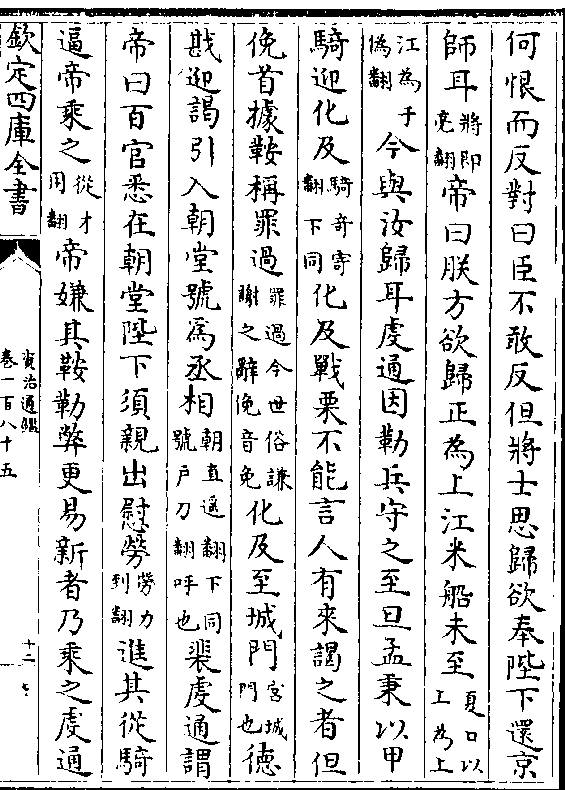 何恨而反對曰臣不敢反但將士思歸欲奉陛下還京
師耳將即亮翻帝曰朕方欲歸正為上江米船未至夏口以上為上
江為于偽翻今與汝歸耳虔通因勒兵守之至旦孟秉以甲
騎迎化及騎奇寄翻下同化及戰栗不能言人有來謁之者但
俛首據鞍稱罪過罪過今世俗謙謝之辭俛音免化及至城門宮城門也德
戡迎謁引入朝堂號爲丞相朝直遥翻下同號戶刀翻呼也裴虔通謂
帝曰百官悉在朝堂陛下須親出慰勞勞力到翻進其從騎
逼帝乘之從才用翻帝嫌其鞍勒弊更易新者乃乘之虔通
欽定四庫全書
資治通鑑
卷一百八十五
十二